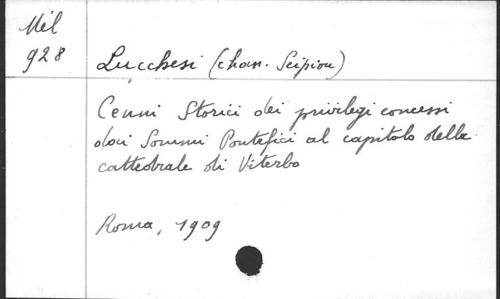 Mél
928
Lucchesi (chan. Scipion)
Cenni Storici dei privilegi concessi
dai Sommi Pontefici al capitolo della
cattedrale di Viterbo
Roma, 1909